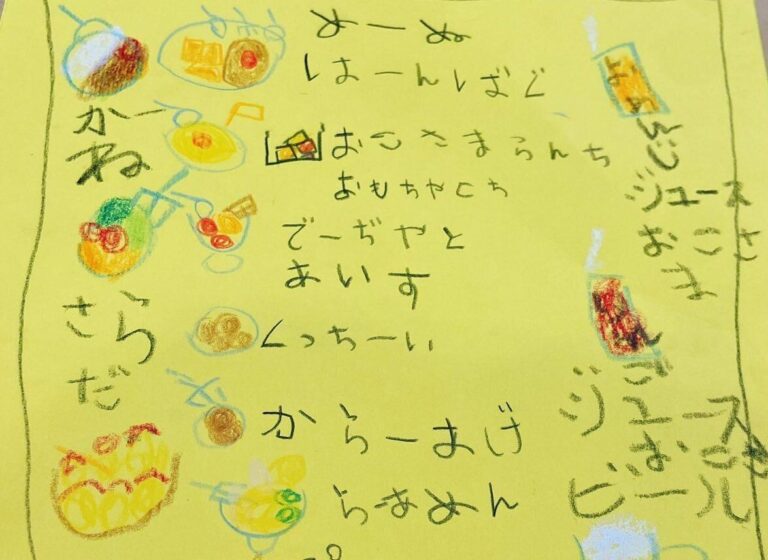 めーぬ
はーんばぐ
かー
ね
おこさまらんち
おもちゃとち
でーぢやと
あいす
さら
だ
くっちーい
からーあげ
らあめん
ジュース
おこさ
ま
ご
ジュース
おこさ
ビール